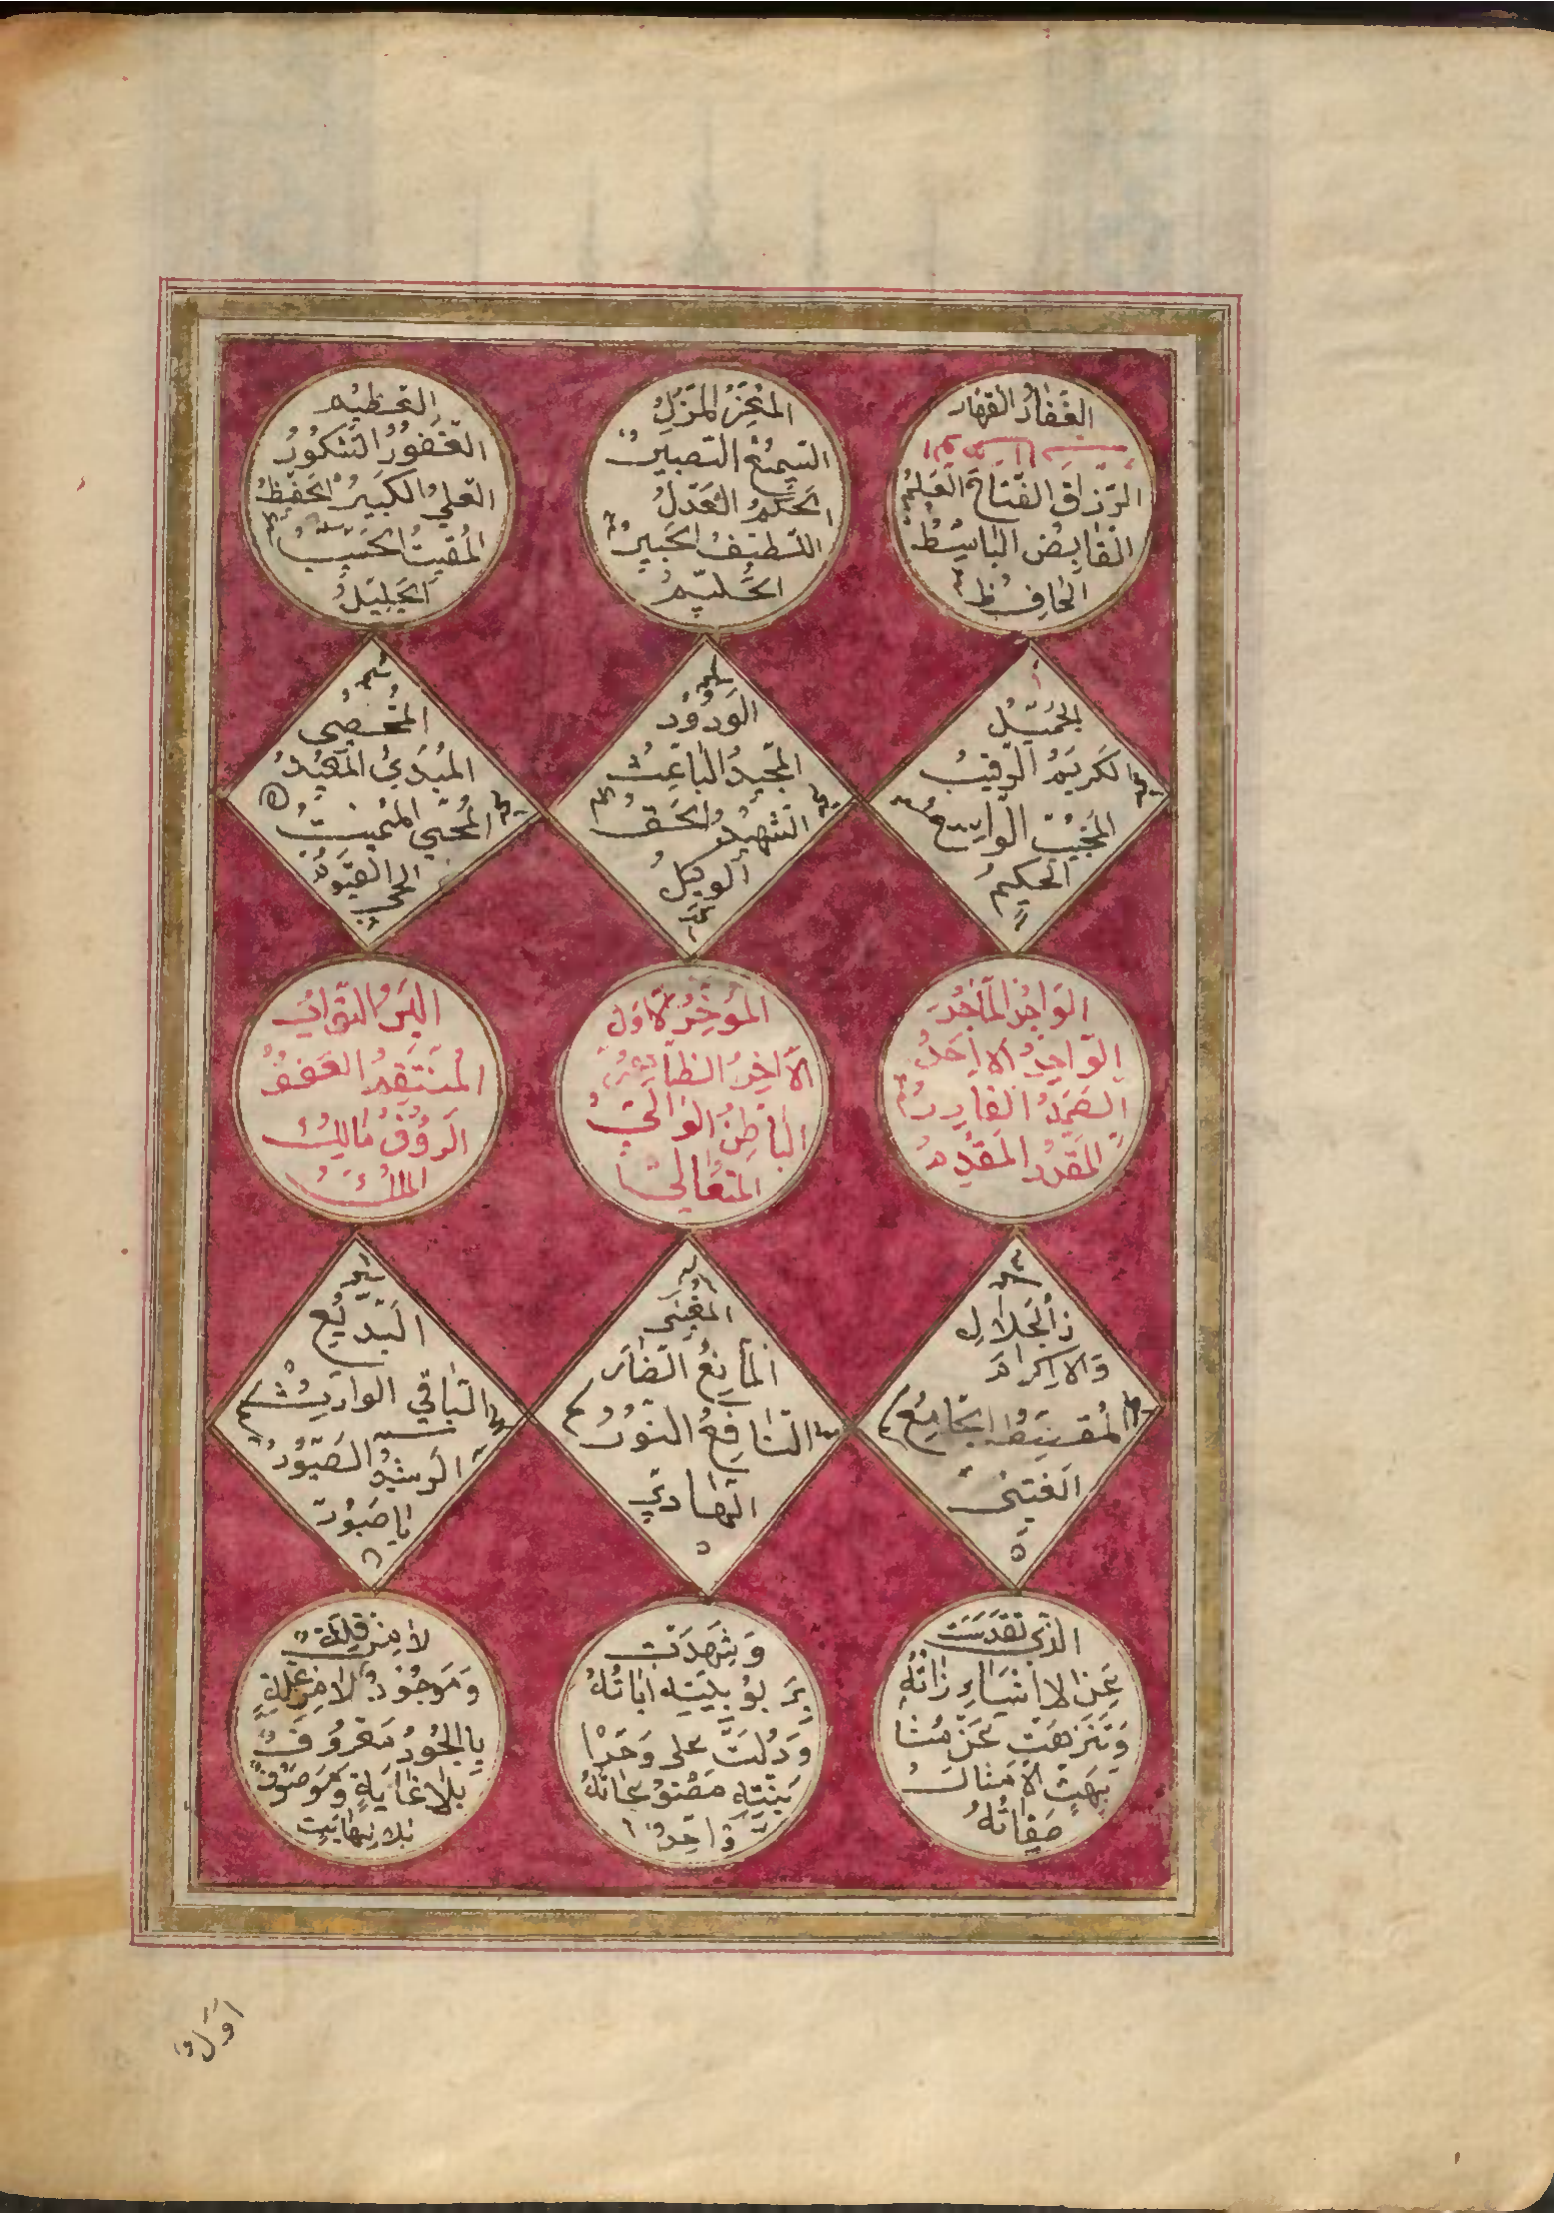 الغَفارُ القهار
الرَّزاقُ الفَتاحُ العَلِيمُ
القابِضُ الباسِطُ
الخافِظُ
المُعِزُّ المُزِلُ
السَمِيعُ البَصيرُ
الحَكَمُ العَدلُ
اللطيفُ الخَبيرُ
الحَليمُ
العَظيم
الغَفُورُ الشَكورُ
العَليُ الكَبيرُ الحَفيظُ
المُقيتُ الحَسيبُ
الجَليلُ
الجَميلُ
الكَريمُ الرَقيبُ
المُجيبُ الواسِعُ
الحَكيمُ
الوَدُودُ
المَجيدُ الباعِثُ
الشَهيدُ الحَقُ
الوَكيلُ
المُحصِي
المُبدِئُ المُعيدُ
المُحيي المُميتُ
الحي القَيومُ
الوَاجِدُ المَاجِدُ
الوَاحِدُ الاحَدُ
الصَمَدُ القادِرُ
المُقتَدِرُ المُقَدِمُ
المُؤَخِّرُ الاوَلُ
الآخِرُ الظاهِرُ
الباطِنُ الوَالِي
المُتَعَالي
البَرُ التَوابُ
المُنتَقِمُ العَفُوُ
الرَؤُفُ مالِكُ
المُلكُ
ذالجَلالِ
وَالاِكرام
المُقسِطُ الجامِعُ
الغَني
المُغني
المانِعُ الضَار
النافِعُ النُورُ
الهَادي
البَديعُ
الباقي الوارِثُ
الرَشيدُ الصَبُورُ
يا صَبُورُ
الذي تَقَدَسَت
عَنِ الاشياءِ ذاتُهُ
وَتَنَزهَت عَن مُشا
بَهَتِ الاَمثالِ
صِفاتُهُ
وَشَهِدَت
بِرَبُوبِيَتِهِ اياتُهُ
وَدَلَت على وَحدا
نيَتِهِ مَصنُوعاتُهُ
وَاحِدٌ
لا مِن قِلَةٍ
وَمَوجُودٌ لا مِن عِلَةٍ
بِالجُودِ مَعرُوفٌ
بلا غايَةٍ وَمَوصُوفٌ
بلا نِهايَةٍ
اوّل و